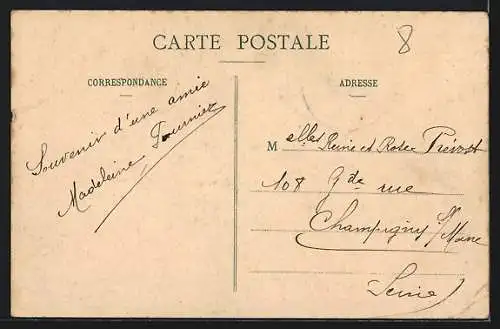 CARTE POSTALE
8
CORRESPONDANCE
Souvenir d'une amie
Madeleine Fournier
ADRESSE
Melles Reine et Rose Prevost
108 Gde rue
Champigny s/Marne
Seine